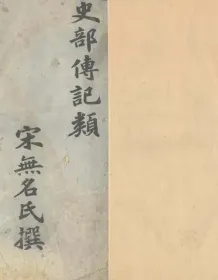 史部傳記類
宋無名氏撰